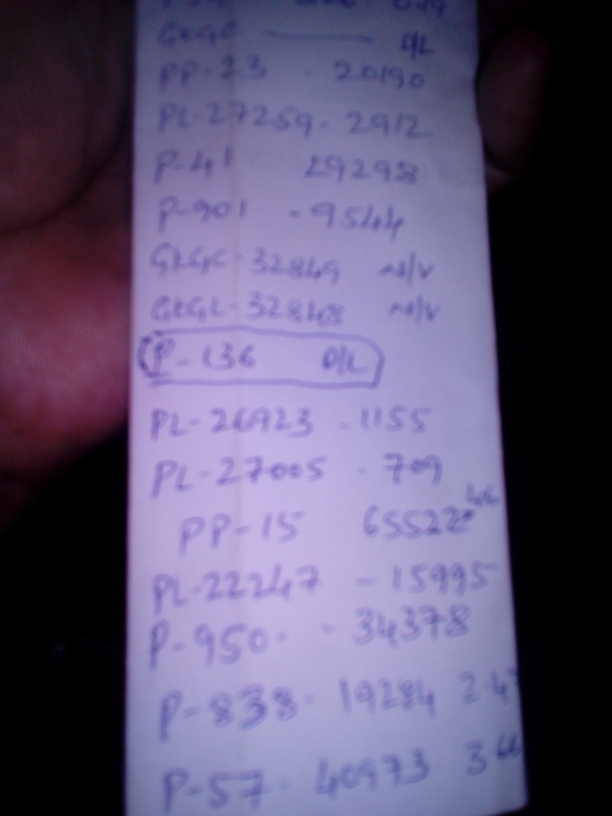 GKGC — D/L
PP-23 - 20190
PL-27259 - 2912
P-41 29298
P-901 - 9544
GKGC-32849 N/V
GKGL-32848 N/V
P-136 D/L
PL-26923 - 1155
PL-27005 - 709
PP-15 65522
PL-22247 - 15995
P-950 - - 34378
P-838 - 19284 2.47
P-57 - 40973